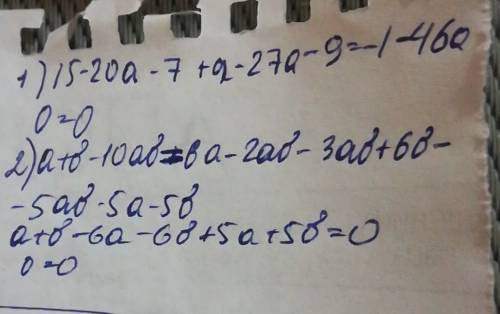 1) 15-20a-7+a-27a-9=-1-46a
0=0
2) a+b-10ab=6a-2ab-3ab+6b-
-5ab-5a-5b
a+b-6a-6b+5a+5b=0
0=0